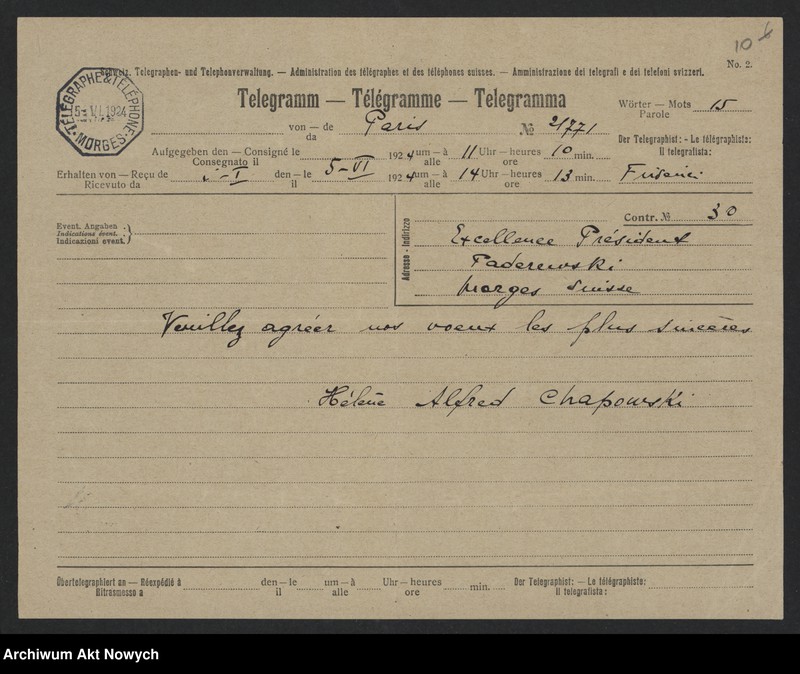 10
Schweiz. Telegraphen- und Telephonverwaltung. — Administration des télégraphes et des téléphones suisses. — Amministrazione dei telegrafi e dei telefoni svizzeri.
No. 2.
TÉLÉGRAPHE & TÉLÉPHONE
5 VI. 1924
MORGES
Telegramm — Télégramme — Telegramma
Wörter — Mots 15
Parole
von — de Paris № 21771
da
Der Telegraphist: - Le télégraphiste:
Il telegrafista:
Aufgegeben den — Consigné le 1924 um — à 11 Uhr — heures 10 min.
Consegnato il alle ore
Erhalten von — Reçu de den — le 5-VI 1924 um — à 14 Uhr — heures 13 min.
Ricevuto da il alle ore
Event. Angaben
Indications évent.
Indicazioni event.
Contr. № 30
Adresse - Indirizzo
Excellence Président
Paderewski
Morges Suisse
Veuillez agréer nos voeux les plus sincères
Hélène Alfred Chapowski
Übertelegraphiert an — Réexpédié à den — le um — à Uhr — heures min. Der Telegraphist: — Le télégraphiste:
Ritrasmesso a il alle ore Il telegrafista:
Archiwum Akt Nowych